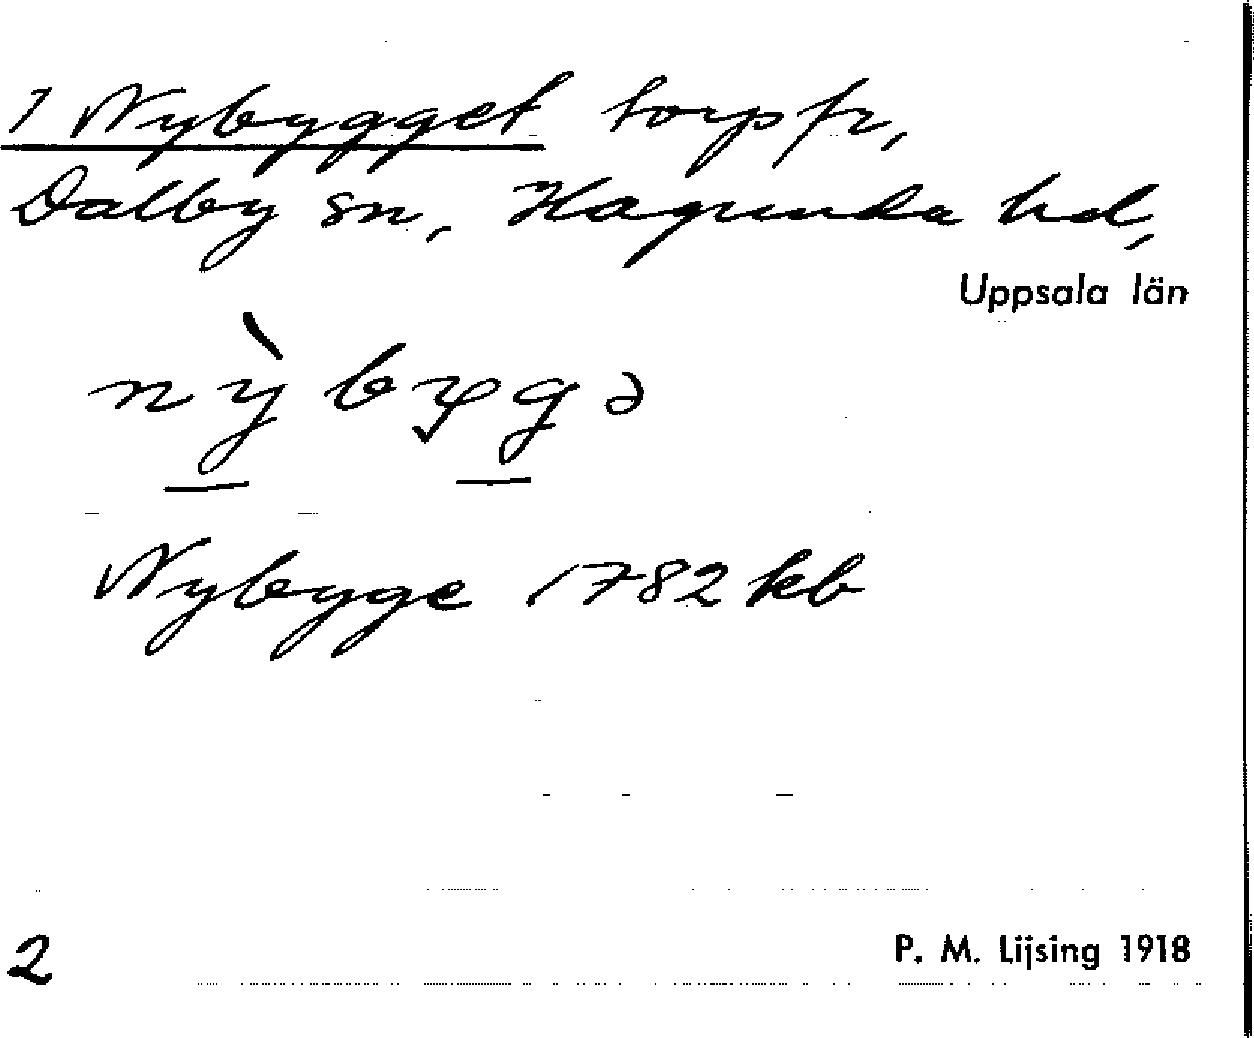 1 Nybygget torp fr,
Dalby sn, Hagunda hd,
Uppsala län
nỳbygə
Nybygge 1782 kb
2
P. M. Lijsing 1918